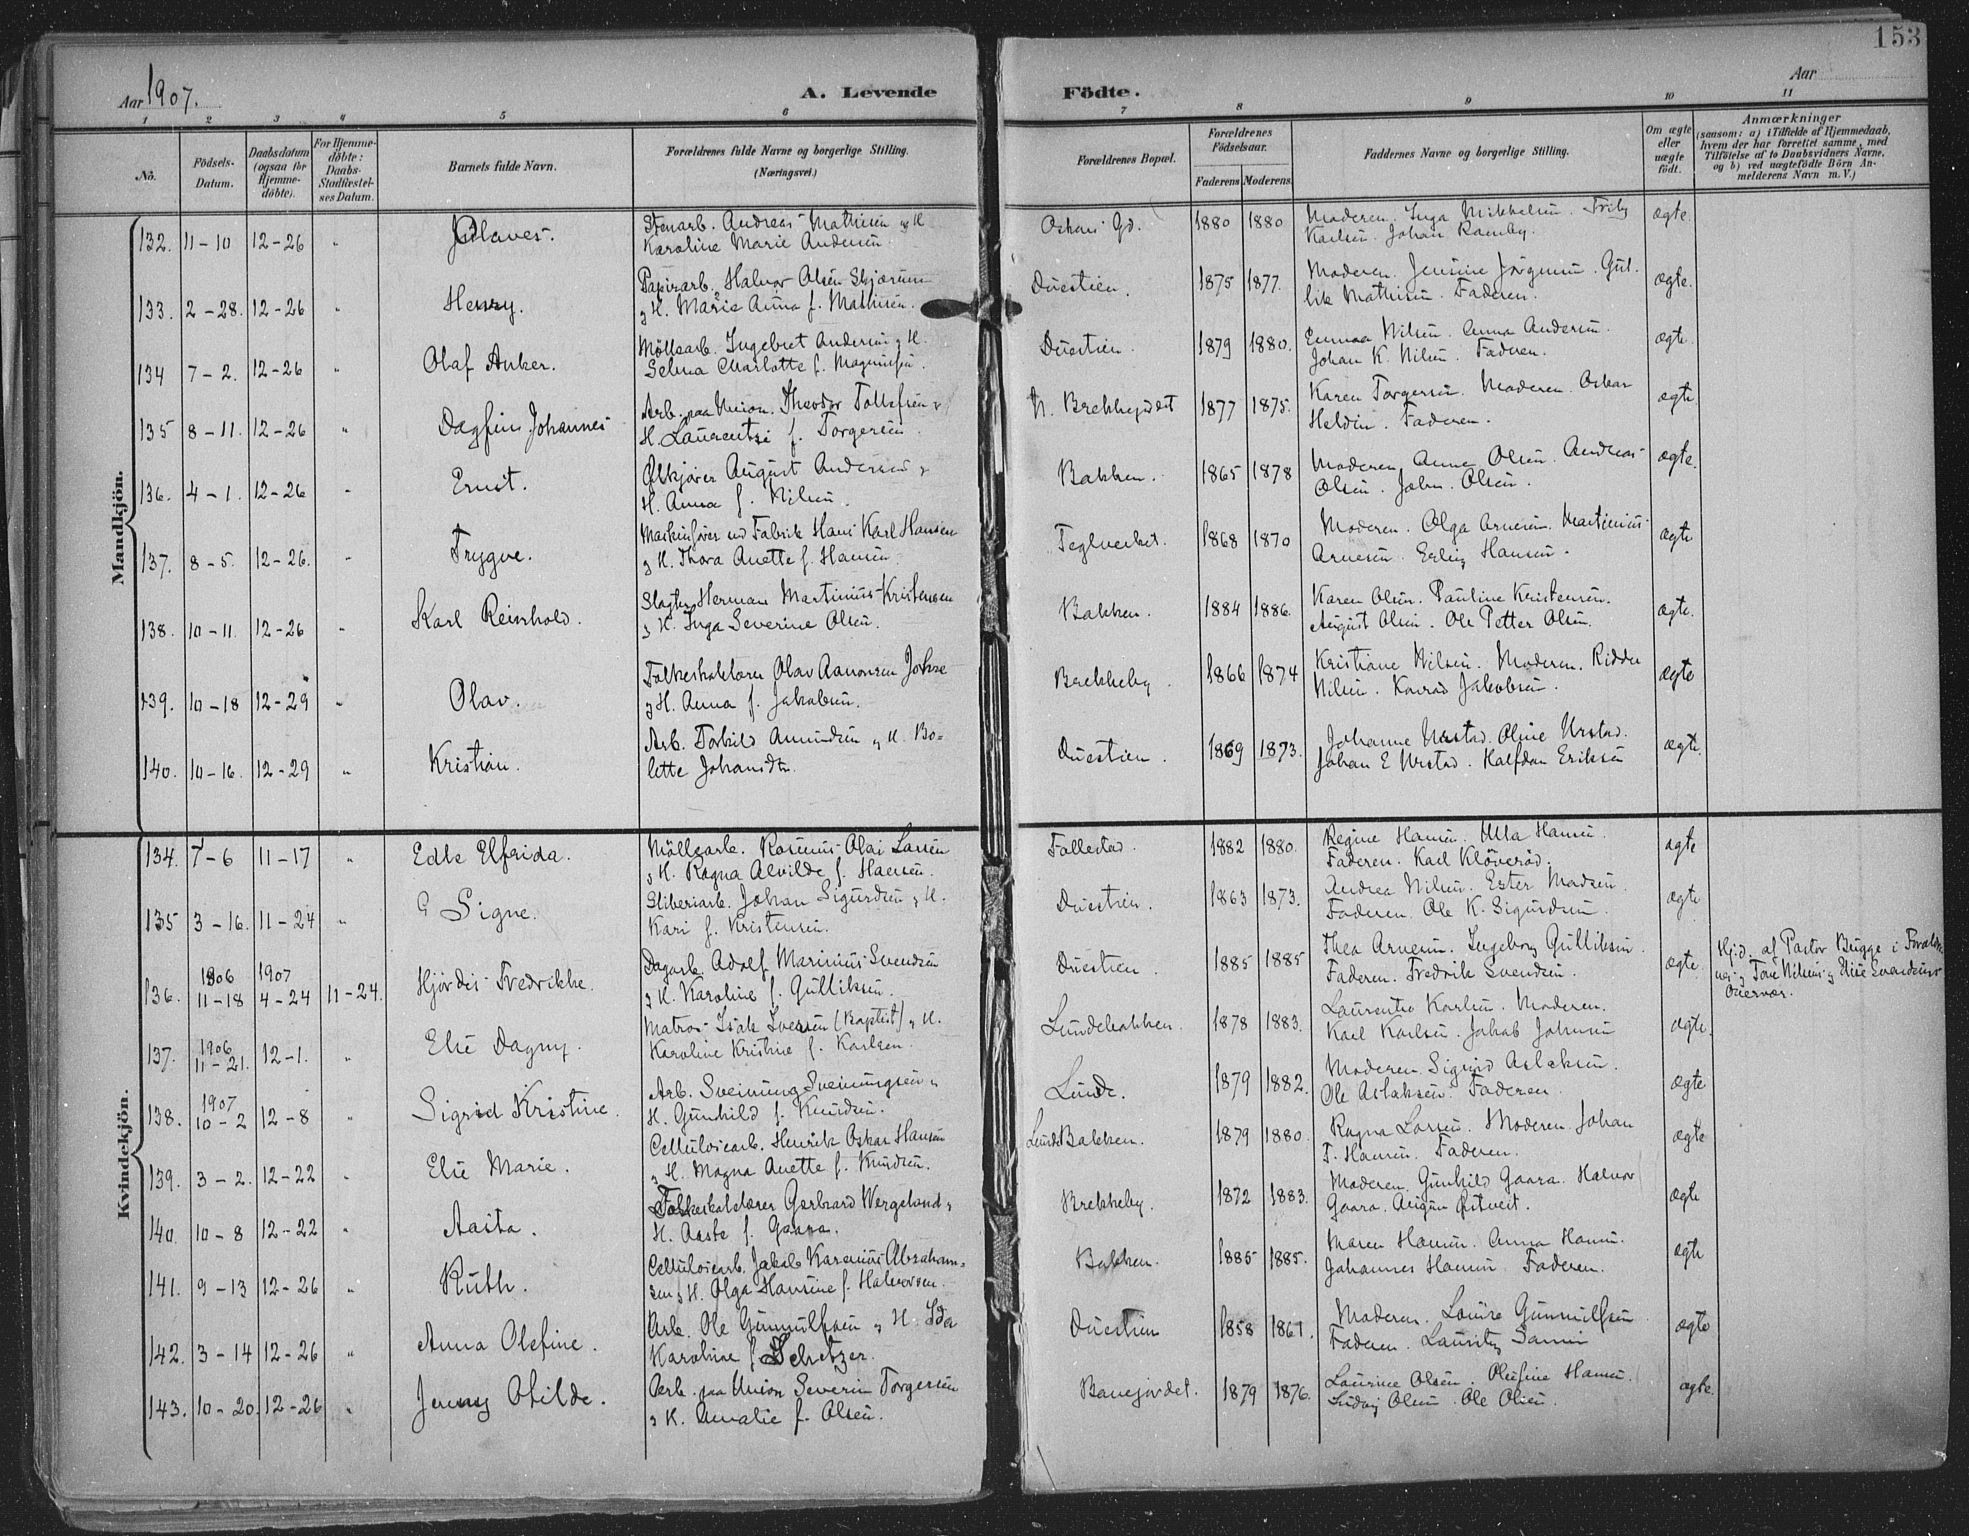 153
Aar 1907.
A. Levende
Födte.
Aar
1 2 3 4 5 6 7 8 9 10 11
No.
Födsels-Datum.
Daabsdatum (ogsaa for Hjemme-döbte).
For Hjemme-döbte: Daabs-Stadfæstel-ses Datum.
Barnets fulde Navn.
Forældrenes fulde Navne og borgerlige Stilling. (Næringsvei.)
Forældrenes Bopæl.
Forældrenes Födselsaar.
Faderens Moderens
Faddernes Navne og borgerlige Stilling.
Om ægte eller uægte födt.
Anmærkninger
(saasom: a) i Tilfælde af Hjemmedaab,
hvem der har forrettet samme, med
Tilföielse af to Daabsvidners Navne,
og b) ved uægtefödte Börn An-
melderens Navn m. V.)
Mandkjön.
132. 11-10 12-26 " Andreas Mathisen og H 1880 1880 Moderen. Inga Mikkelsen. ægte.
Karoline Marie Andersen Karlsen. Johan
133. 2-28. 12-26 " Henry. Papirarb. Halvor Olsen Duestien. 1875 1877. Moderen. Jensine Jörgensen. Gul- ægte.
H. Marie Anna f. Mathisen. lik Mathisen. Faderen.
134 7-2. 12-26 " Olaf Anker. Möllearb. Ingebret Andersen og H. Duestien. 1879 1880. Nilsen. Anna Andersen. ægte.
Selma Charlotte f. Magnusen. Johan K. Nilsen. Faderen.
135 8-11. 12-26 " Dagfin Johannes Arb. paa Union. Theodor Tollefsen 1877 1875. Karen Torgersen. Moderen. Oskar ægte
H. f. Torgersen Faderen.
136. 4-1. 12-26 " Ernst. Ølkjører August Andersen Bakken. 1865 1878 Moderen. Anne Olsen. Andreas ægte.
H. Anna f. Nilsen. Olsen. John. Olsen.
137. 8-5. 12-26. " Trygve. Fabrik Hans Karl Hansen Teglverket. 1868 1870 Moderen. Olga Arnesen. Martinius ægte
H. Thora Anette f. Hansen. Arnesen. Erling Hansen.
138. 10-11. 12-26 " Karl Reinhold. Slagter Herman Martinius Kristensen Bakken. 1884 1886. Karen Olsen. Pauline Kristensen. ægte.
H. Inga Severine Olsen. August Olsen. Ole Petter Olsen.
139. 10-18 12-29 " Olav. Folkeskolelærer Olav Aanonsen Brekkeby. 1866 1874 Kristiane Nilsen. Moderen. ægte
H. Anna f. Jakobsen. Nilsen. Konrad Jakobsen.
140. 10-16. 12-29 " Kristian. Arb. Torkild Amundsen og H. Bo- Duestien. 1869 1873. Johanne Urstad. Oline Urstad. ægte.
lette Johansdtr. Johan E Urstad. Halfdan Eriksen
Kvindekjön.
134. 7-6 11-17 " Edle Elfrida. Möllearb. Olai Larsen Follestad. 1882 1880. Regine Hansen. Ulla Hansen ægte
H. Ragna Alvilde f. Hansen. Faderen. Karl Klöveröd.
135 3-16. 11-24 " Signe. Sliberiarb. Johan Sigurdsen og H. Duestien. 1863 1873. Andrea Nilsen. Ester Madsen. ægte
Kari f. Kristensen. Faderen. Ole K. Sigurdsen.
136. 1906 11-18 1907 4-24 11-24. Hjördis Fredrikke. Dagarb. Adolf Marinius Svendsen Duestien. 1885 1885 Thea Arnesen. Ingeborg Gulliksen ægte. Hjd. af Pastor Bugge i
H. Karoline f. Gulliksen. Faderen. Fredrik Svendsen. Tone Nilsen og Elise Svendsens
137. 1906 11-21. 12-1. " Elie Dagny. Matros Isak Iversen (Baptist) og H. Lundebakken. 1878 1883. Laurentze Karlsen. Moderen. ægte.
Karoline Kristine f. Karlsen. Karl Karlsen. Jakob Johnsen
138. 1907 10-2 12-8 " Sigrid Kristine. Arb. Sveinung Sveinungsen og Lunde. 1879 1882. Moderen. Sigrid Aslaksen. ægte
H. Gunhild f. Knudsen. Ole Aslaksen. Faderen.
139. 3-2. 12-22 " Elie Marie. Cellulosearb. Henrik Oskar Hansen Lunde Bakken. 1879 1880. Ragna Larsen. Moderen. Johan ægte
H. Magna Anette f. Knudsen. F. Hansen. Faderen.
140. 10-8 12-22 " Aasta. Folkeskolelærer Gerhard Wergeland Brekkeby. 1872 1883. Moderen. Gunhild Gaara. Halvor ægte
H. Aaste f. Gaara. Gaara. Østveit.
141. 9-13 12-26 " Ruth. Cellulosearb. Jakob Karenius Abraham- Bakken. 1885 1885. Maren Hansen. Anna Hansen. ægte
sen og H. Olga Hansine f. Halvorsen. Johannes Hansen Faderen.
142. 3-14 12-26 " Anna Olefine. Arb. Ole Gunnulfsen og H. Ida Duestien 1858 1861. Moderen. Louise Gunnulfsen ægte
Karoline f. Schetzer. Faderen. Lauritz
143. 10-20. 12-26 " Jenny Otilde. Arb. paa Union Severin Torgersen Banejordet. 1879 1876. Laurine Olsen. Olefine Hansen. ægte.
H. Amalie f. Olsen. Ludvig Olsen. Ole Olsen.